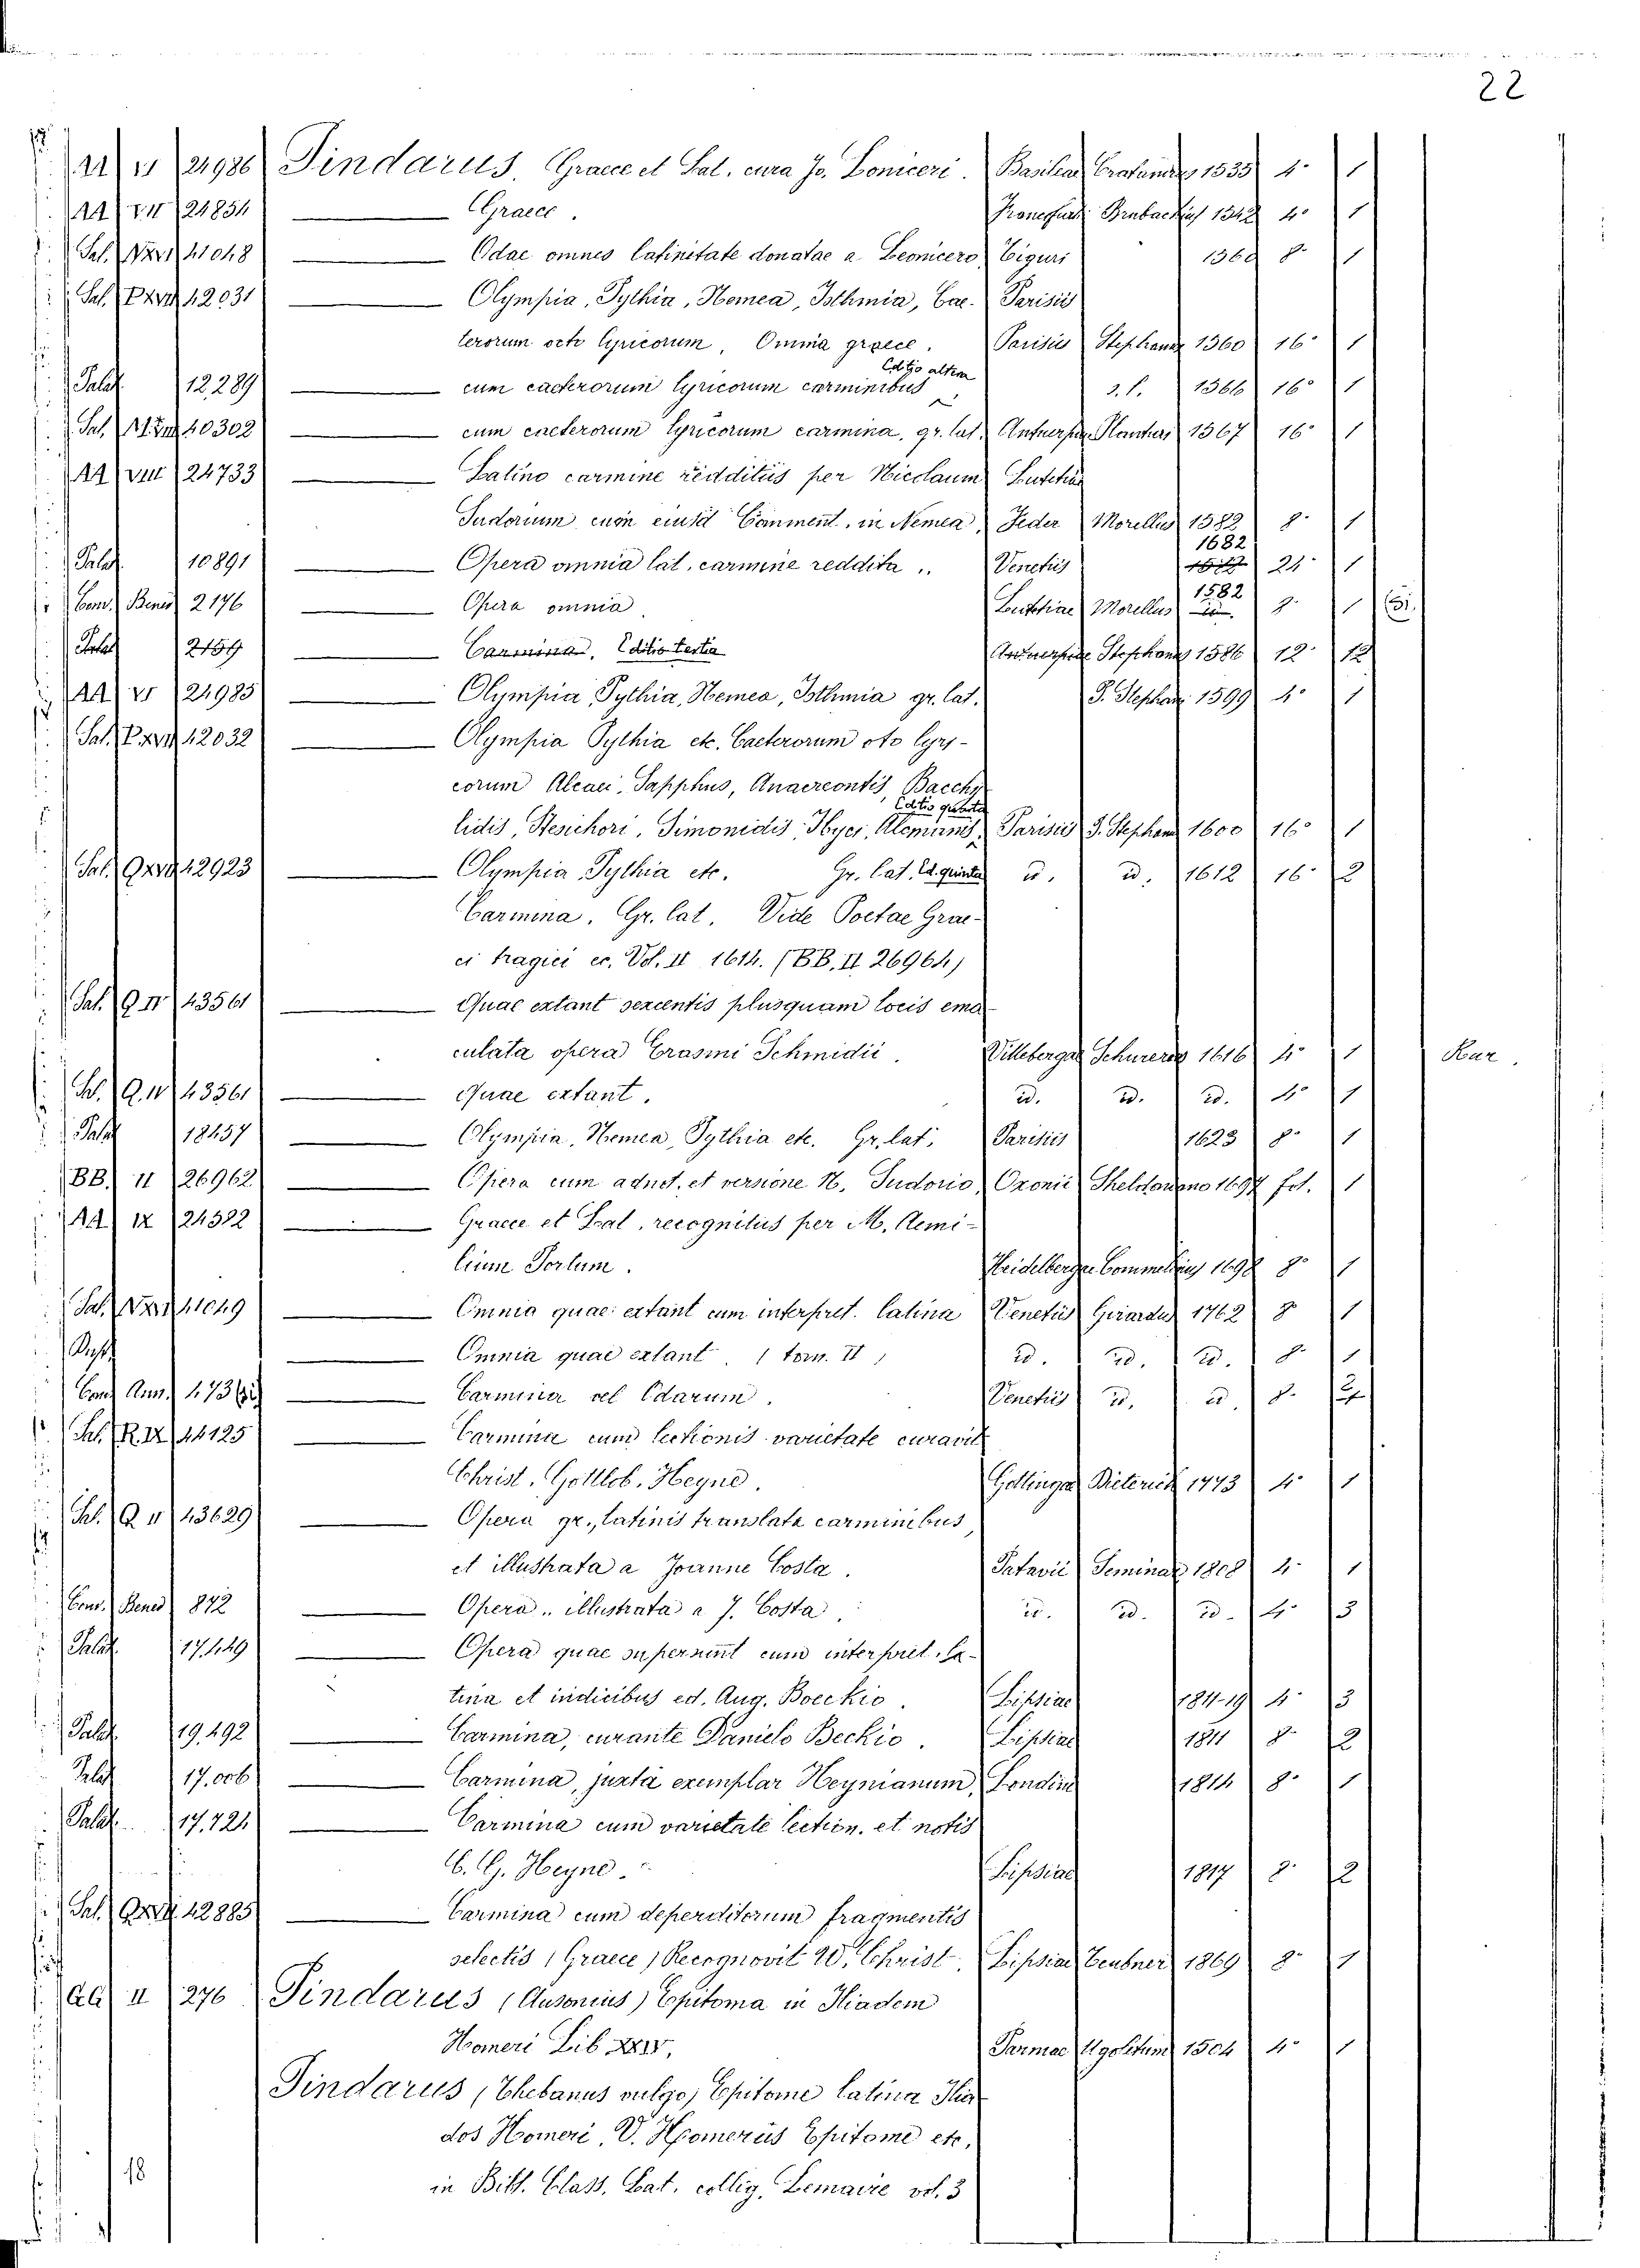 22
AA VI 24986 Pindarus. Graece et Lat. cura Jo. Loniceri. Basileae Cratandrus 1535 4° 1
AA VII 24854 — Graece. Francofurti Brubachius 1542 4° 1
Sal. 41048 — Odae omnes latinitate donatae a Leonicero Tiguri 1560 8° 1
Sal. 42031 — Olympia, Pythia, Nemea, Isthmia, Cae- Parisiis
terorum octo lyricorum, Omnia graece. Parisiis Stephanus 1560 16° 1
Palat. 12,289 — cum caeterorum lyricorum carminibus Editio altera s. l. 1566 16° 1
Sal. 40302 — cum caeterorum lyricorum carmina, gr. lat. Antuerpiae Plantinus 1567 16° 1
AA VIII 24733 — Latino carmine redditus per Nicolaum Lutetiae
Sudorium cum eiusd. Comment. in Nemea, Feder Morellus 1582 8° 1
Palat. 10891 — Opera omnia lat. carmine reddita .. Venetiis 1682 24° 1
Conv. Bened. 2176 — Opera omnia. Lutetiae Morellus 1582 8° 1
Palat. 2159 — Carmina, Editio tertia Antuerpiae Stephanus 1586 12° 12
AA VI 24985 — Olympia, Pythia, Nemea, Isthmia gr. lat. P. Stephanus 1599 4° 1
Sal. 42032 — Olympia Pythia etc. Caeterorum octo lyri-
corum Alcaei, Sapphus, Anacreontis, Bacchy
lidis, Stesichori, Simonidis, Ibyci, Alcmanis, Editio quarta Parisiis P. Stephanus 1600 16° 1
Sal. 42923 — Olympia Pythia etc. Gr. lat. Ed. quinta id. id. 1612 16° 2
Carmina. Gr. lat. Vide Poetae Grae-
ci tragici ec. Vol. II 1614. (BB. II 26964)
Sal. Q. IV 43561 — Quae extant sexcentis plusquam locis ema-
culata opera Erasmi Schmidii. Vitebergae Schurerus 1616 4° 1 Rar.
Sal. Q. IV 43561 — Quae extant. id. id. id. 4° 1
Palat. 18457 — Olympia, Nemea, Pythia etc. Gr. lat. Parisiis 1623 8° 1
BB. II 26962 — Opera cum adnot. et versione N. Sudorio, Oxonii Sheldoniano 1697 fol. 1
AA IX 24522 — Graece et Lat. recognitus per M. Aemi-
lium Portum. Heidelbergae Commelinus 1698 8° 1
Sal. 41049 — Omnia quae extant cum interpret. latina Venetiis Girardus 1762 8° 1
— Omnia quae extant. (tom. II) id. id. id. 8° 1
Conv. Ann. 173 — Carminum vel Odarum. Venetiis id. id. 8° 2
Sal. R. IX 44125 — Carmina cum lectionis varietate curavit
Christ. Gottlob. Heyne. Gottingae Dieterich 1773 4° 1
Sal. Q. V 43629 — Opera gr., latinis translata carminibus
et illustrata a Joanne Costa. Patavii Seminar. 1808 4° 1
Conv. Bened. 872 — Opera .. illustrata a J. Costa. id. id. id. 4° 3
Palat. 17,449 — Opera quae supersunt cum interpret. la-
tina et indicibus ed. Aug. Boeckio. Lipsiae 1811-19 4° 3
Palat. 19,492 — Carmina, curante Danielo Beckio. Lipsiae 1811 8° 2
Palat. 17,006 — Carmina, juxta exemplar Heynianum, Londini 1814 8° 1
Palat. 17,721 — Carmina cum varietate lection. et notis
C. G. Heyne. Lipsiae 1817 8° 2
Sal. 42885 — Carmina cum deperditorum fragmentis
selectis (Graece) Recognovit W. Christ. Lipsiae Teubner 1869 8° 1
AA II 276 Pindarus (Ausonius) Epitoma in Iliadem
Homeri Lib XXIV. Parmae Ugoletum 1504 4° 1
Pindarus (Thebanus vulgo) Epitome latina Ilia-
dos Homeri. V. Homerus Epitome etc.
in Bibl. Class. Lat. collig. Lemaire vol. 3
18